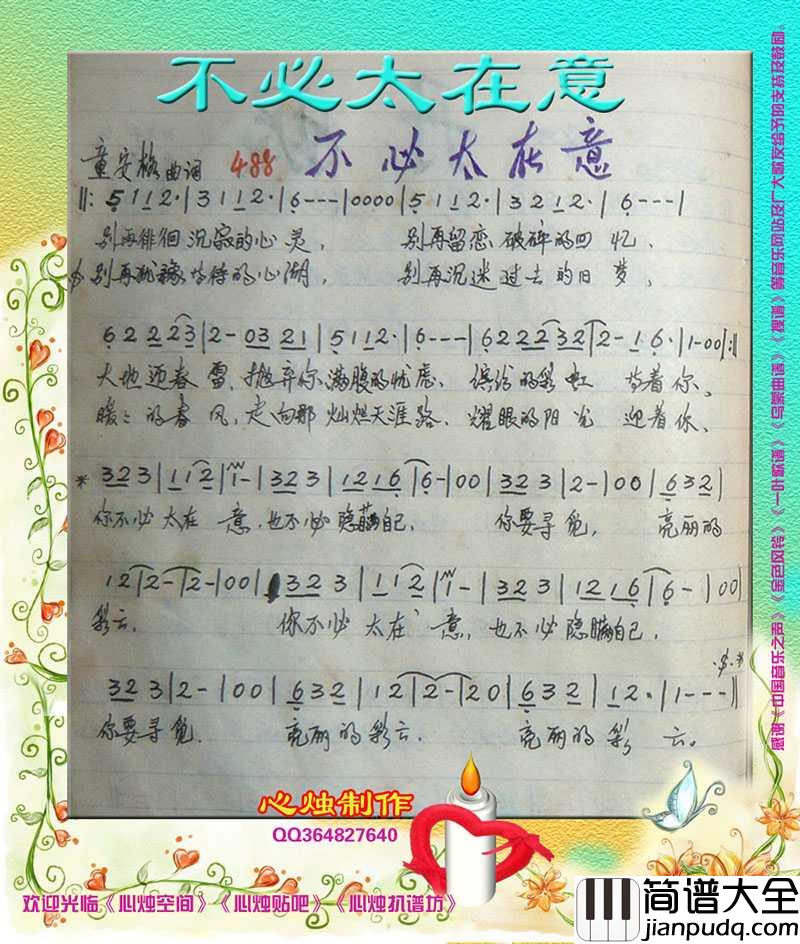 不必太在意
童安格曲词 488 不必太在意
‖: 5 1 1 2· | 3 1 1 2· | 6 - - - | 0 0 0 0 | 5 1 1 2· | 3 2 1 2· | 6 - - - |
别再徘徊沉寂的心灵， 别再留恋破碎的回忆、
别再 等待的心湖， 别再沉迷过去的旧梦，
6 2 2 2 2 3 | 2 - 0 3 2 1 | 5 1 1 2· | 6 - - - | 6 2 2 2 3 2 | 2 - 1 6· | 1 - 0 0 :‖
大地迎春雷、抛弃你满腹的忧虑、缤纷的彩虹 等着你、
暖暖的春风，走向那灿烂天涯路、耀眼的阳光 迎着你、
* 3 2 3 | 1 1 2 | 1 - | 3 2 3 | 1 2 1 6 | 6 - | 0 0 | 3 2 3 | 2 - | 0 0 | 6 3 2 |
你不必太在 意，也不必隐瞒自己， 你要寻觅， 亮丽的
1 2 | 2 - | 2 - | 0 0 | 3 2 3 | 1 1 2 | 1 - | 3 2 3 | 1 2 1 6 | 6 - | 0 0 |
彩云、 你不必太在 意，也不必隐瞒自己，
3 2 3 | 2 - | 0 0 | 6 3 2 | 1 2 | 2 - | 2 0 | 6 3 2 | 1 2· | 1 - - - ‖
你要寻觅、 亮丽的彩云、 亮丽的彩 云。
心烛制作
QQ364827640
欢迎光临《心烛空间》《心烛贴吧》《心烛扒谱坊》
感谢《中国音乐之声》《金色风铃》《一叶歌谱》《乌蒙曲谱》《搜谱》等音乐网站及广大歌友给予的支持及鼓励。
简谱大全
jianpudq.com